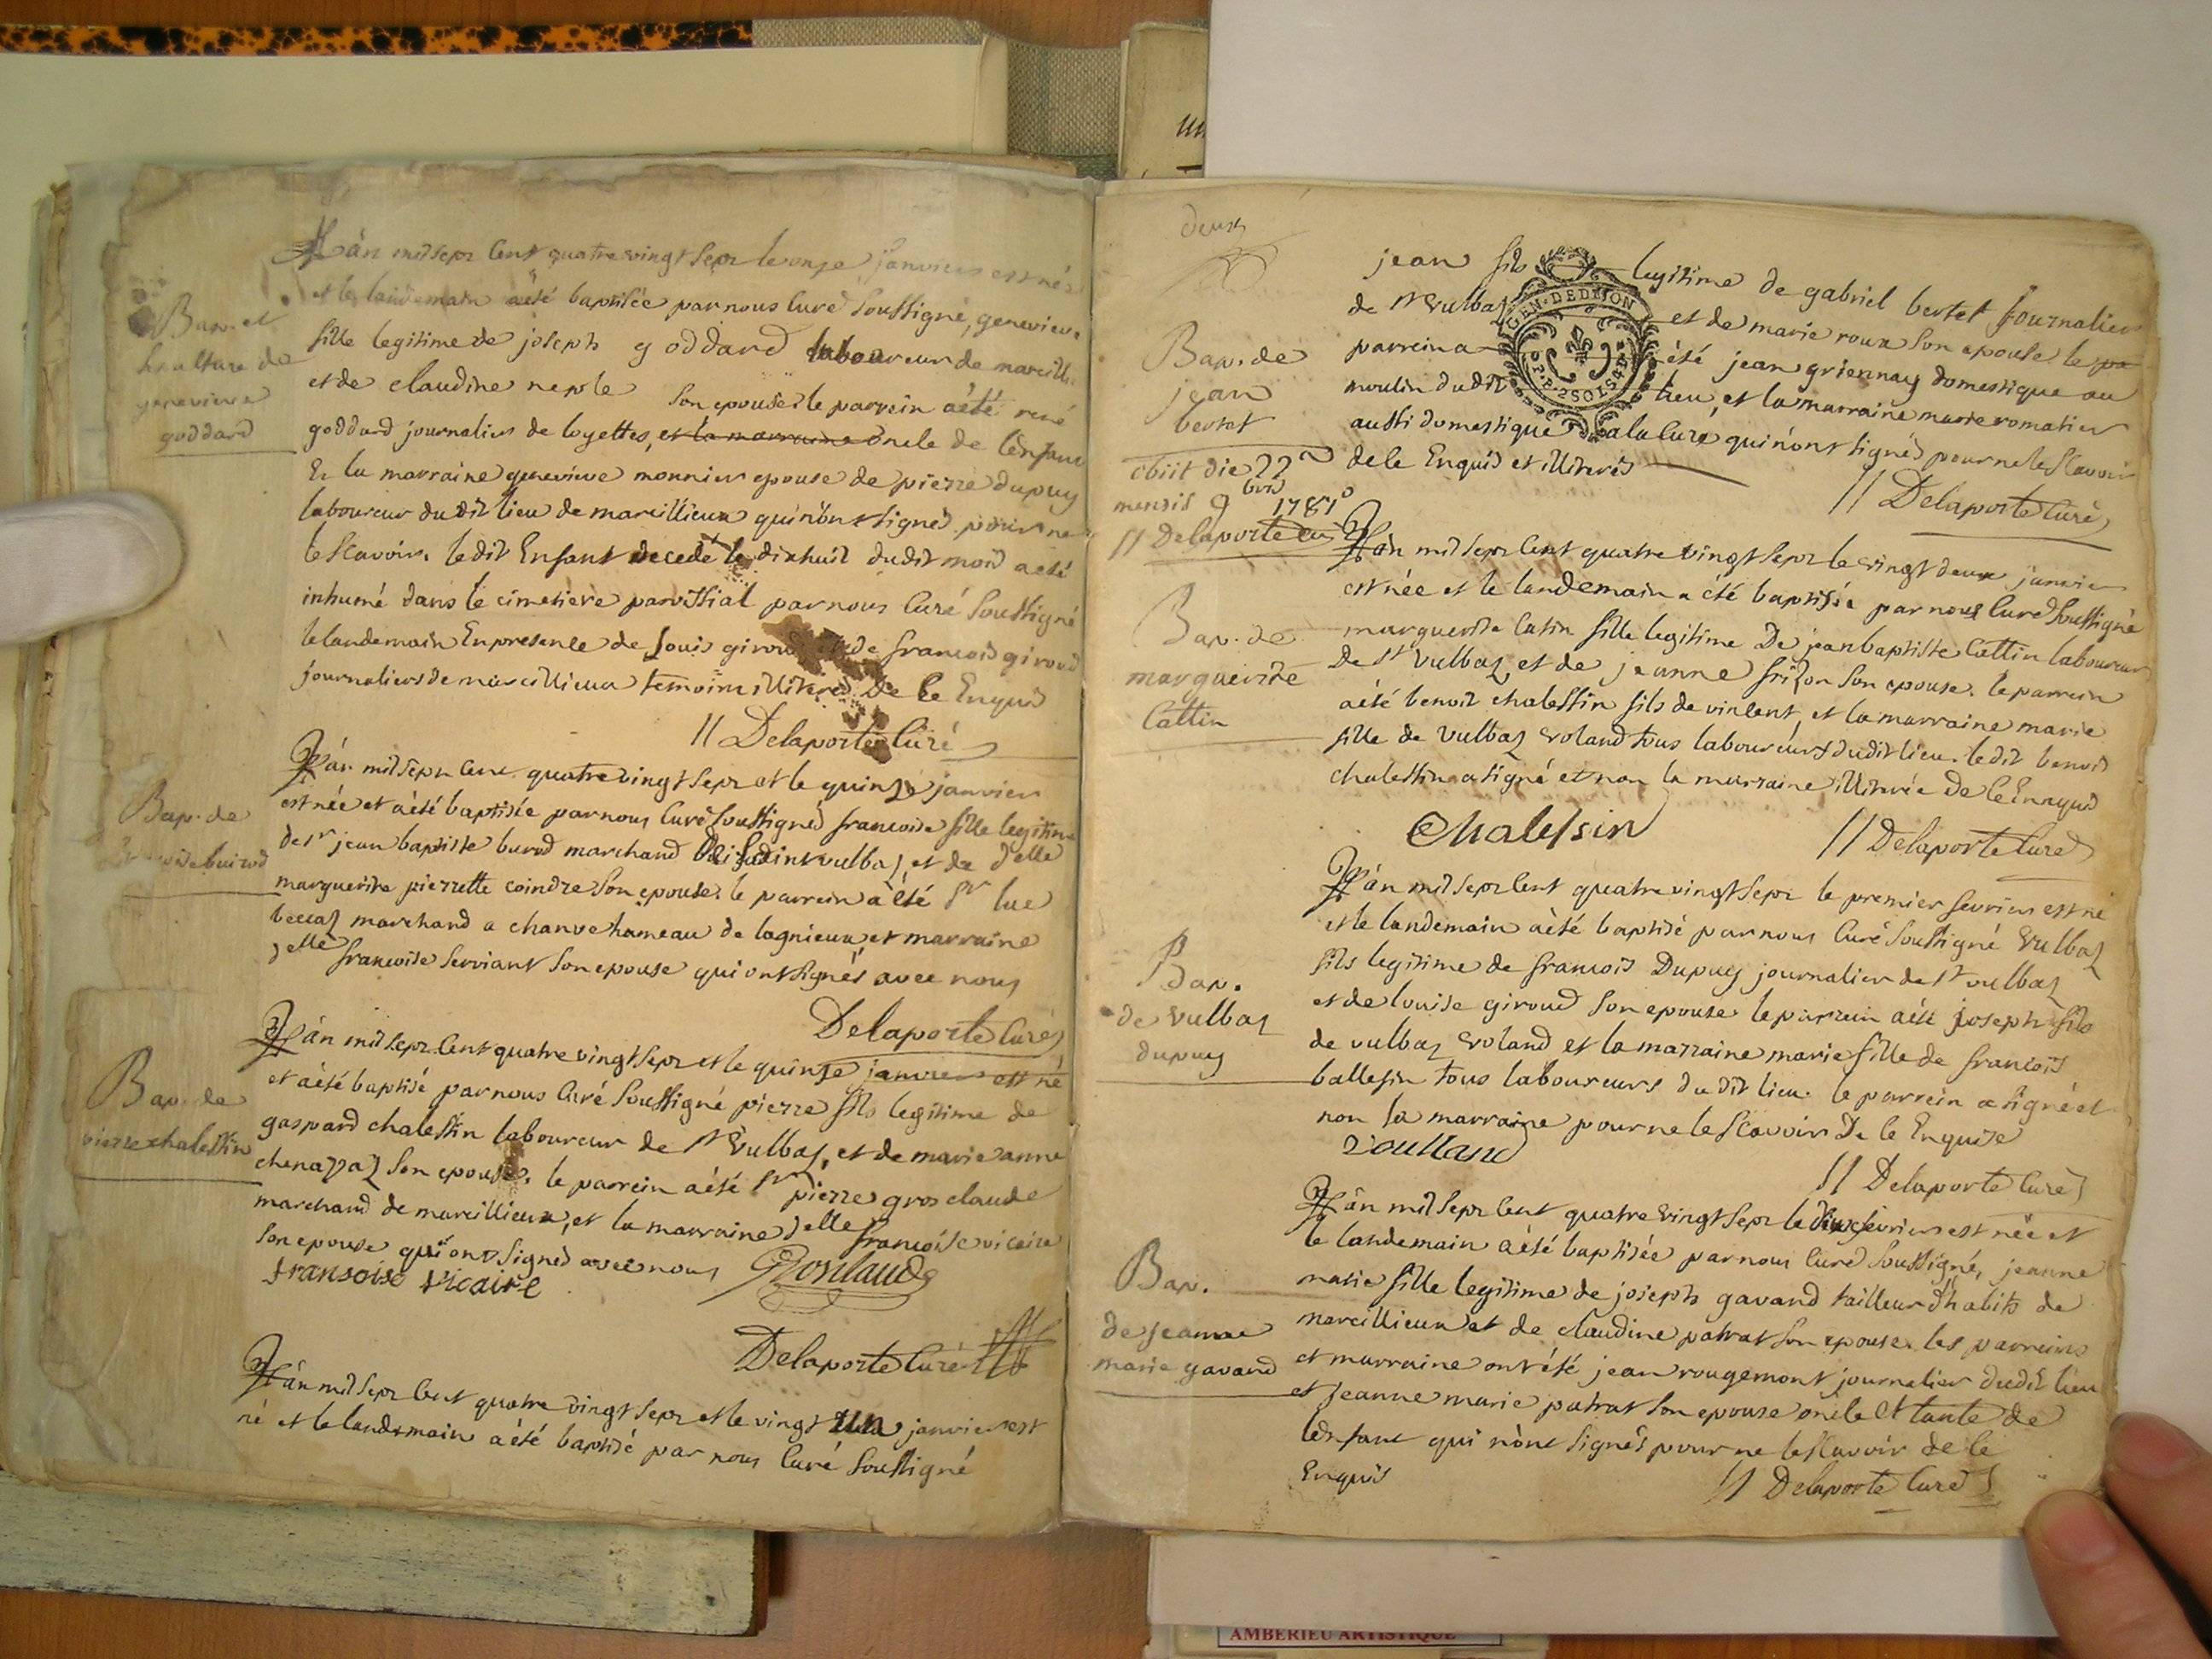 Bap. et
sepulture de
genevieve
goddard
L'án mil sept Cent quatre vingt sept le onze janvier est née
et le landemain aèté baptisée par nous Curé soussigné, genevieve
fille legitime de joseph goddard laboureur de marcilli
et de claudine neple son epouse; le parrein aété rené
goddard journalier de loyettes, et la marraine oncle de l'enfant
Et la marraine genevieve monnier epouse de pierre dupuy
laboureur du dit lieu de marcillieux qui n'ont signés pour ne
le scavoir. le dit Enfant decedé le dixhuit dudit mois aété
inhumé dans le cimetière paroissial par nous Curé soussigné
le landemain En presence de Louis giroud et de francois giroud
journaliers de marcillieux temoins illiterés De Ce Enquis
// Delaporte Curé
Bap. de
buirod
L'án mil sept Cent quatre vingt sept et le quinze janvier
est née et aèté baptisée par nous Curé soussignés francoise fille legitime
de sr jean baptiste burod marchand st vulbas, et de delle
marguerite pierrette coindre son epouse. le parrein aèté Sr luc
beccas marchand a chanve hameau de lagnieux et marraine
delle francoise serviant son epouse qui ont signés avec nous
Delaporte Curé
Bap. de
pierre chalessin
L'án mil sept Cent quatre vingt sept et le quinze janvier est né
et aèté baptisé par nous Curé soussigné pierre fils legitime de
gaspard chalessin laboureur de st Vulbas, et de marie anne
chenavas son epouse. le parrein aété Sr pierre gros claude
marchand de marcillieux, et la marraine delle francoise vicaire
son epouse qui ont signés avec nous
fransoise vicaire
Delaporte Curé
L'án mil sept Cent quatre vingt sept et le vingt un janvier est
né et le landemain aèté baptisé par nous Curé soussigné
deux
Bap. de
jean
bertet
obiit die 22a
mensis 9bris 1787o
// Delaporte Cu
jean fils legitime de gabriel bertet journalier
de st Vulbas et de marie roux son epouse le pa
parrein a été jean griennay domestique au
moulin dudit lieu, et la marraine marie romatier
aussi domestique a la Cure qui n'ont signés pour ne le scavoir
de le Enquis et illiterés
// Delaporte Curé
GEN. DE DIJON
Bap. de
marguerite
Cattin
L'án mil sept Cent quatre vingt sept le vingt deux janvier
est née et le landemain a été baptisée par nous Curé soussigné
marguerite Catin fille legitime De jean baptiste Cattin laboureur
de st Vulbas, et de jeanne frizon son epouse. le parrein
aété benoit chalessin fils de vincent, et la marraine marie
fille de Vulbas roland tous laboureurs dudit lieu. ledit benoit
chalessin a signé et non la marraine illiterée De Ce Ennquis
Chalessin
// Delaporte Curé
Bap.
de vulbas
dupuy
L'án mil sept Cent quatre vingt sept le premier fevrier est né
et le landemain aèté baptisé par nous Curé soussigné Vulbas
fils legitime de francois Dupuy journalier de st vulbas
et de louise giroud son epouse le parrein aété joseph fils
de vulbas roland et la marraine marie fille de francois
ballesin tous laboureurs du dit lieu. le parrein a signé et
non la marraine pour ne le scavoir De Ce Enquise
roulland
// Delaporte Curé
Bap.
de jeanne
marie gavand
L'án mil sept Cent quatre vingt sept le fevrier est née et
le landemain aèté baptisée par nous Curé soussigné, jeanne
marie fille legitime de joseph gavand tailleur d'habits de
marcillieux et de claudine patrat son epouse. les parreins
et marraine ont été jean rougemont journalier dudit lieu
et jeanne marie patrat son epouse oncle et tante de
l'enfant qui n'ont signés pour ne le scavoir de ce
Enquis
// Delaporte Curé
AMBERIEU ARTISTIQUE